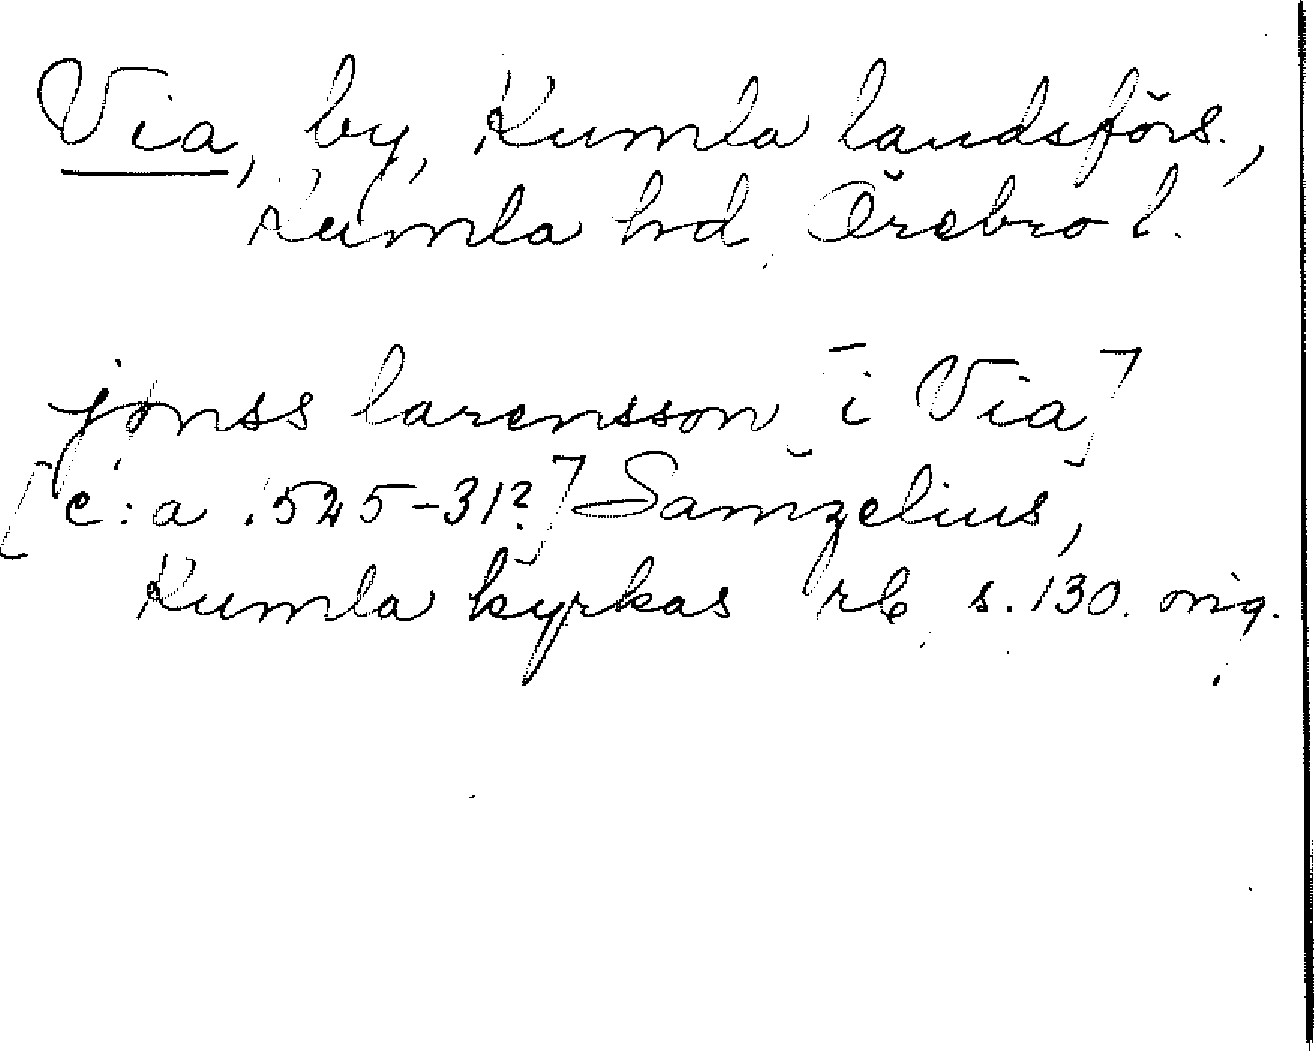 Via, by, Kumla landsförs.,
Kumla hd, Örebro l.
jönss larensson [i Via]
[c:a 1525-31?] Samzelius,
Kumla kyrkas rb s. 130. orig.